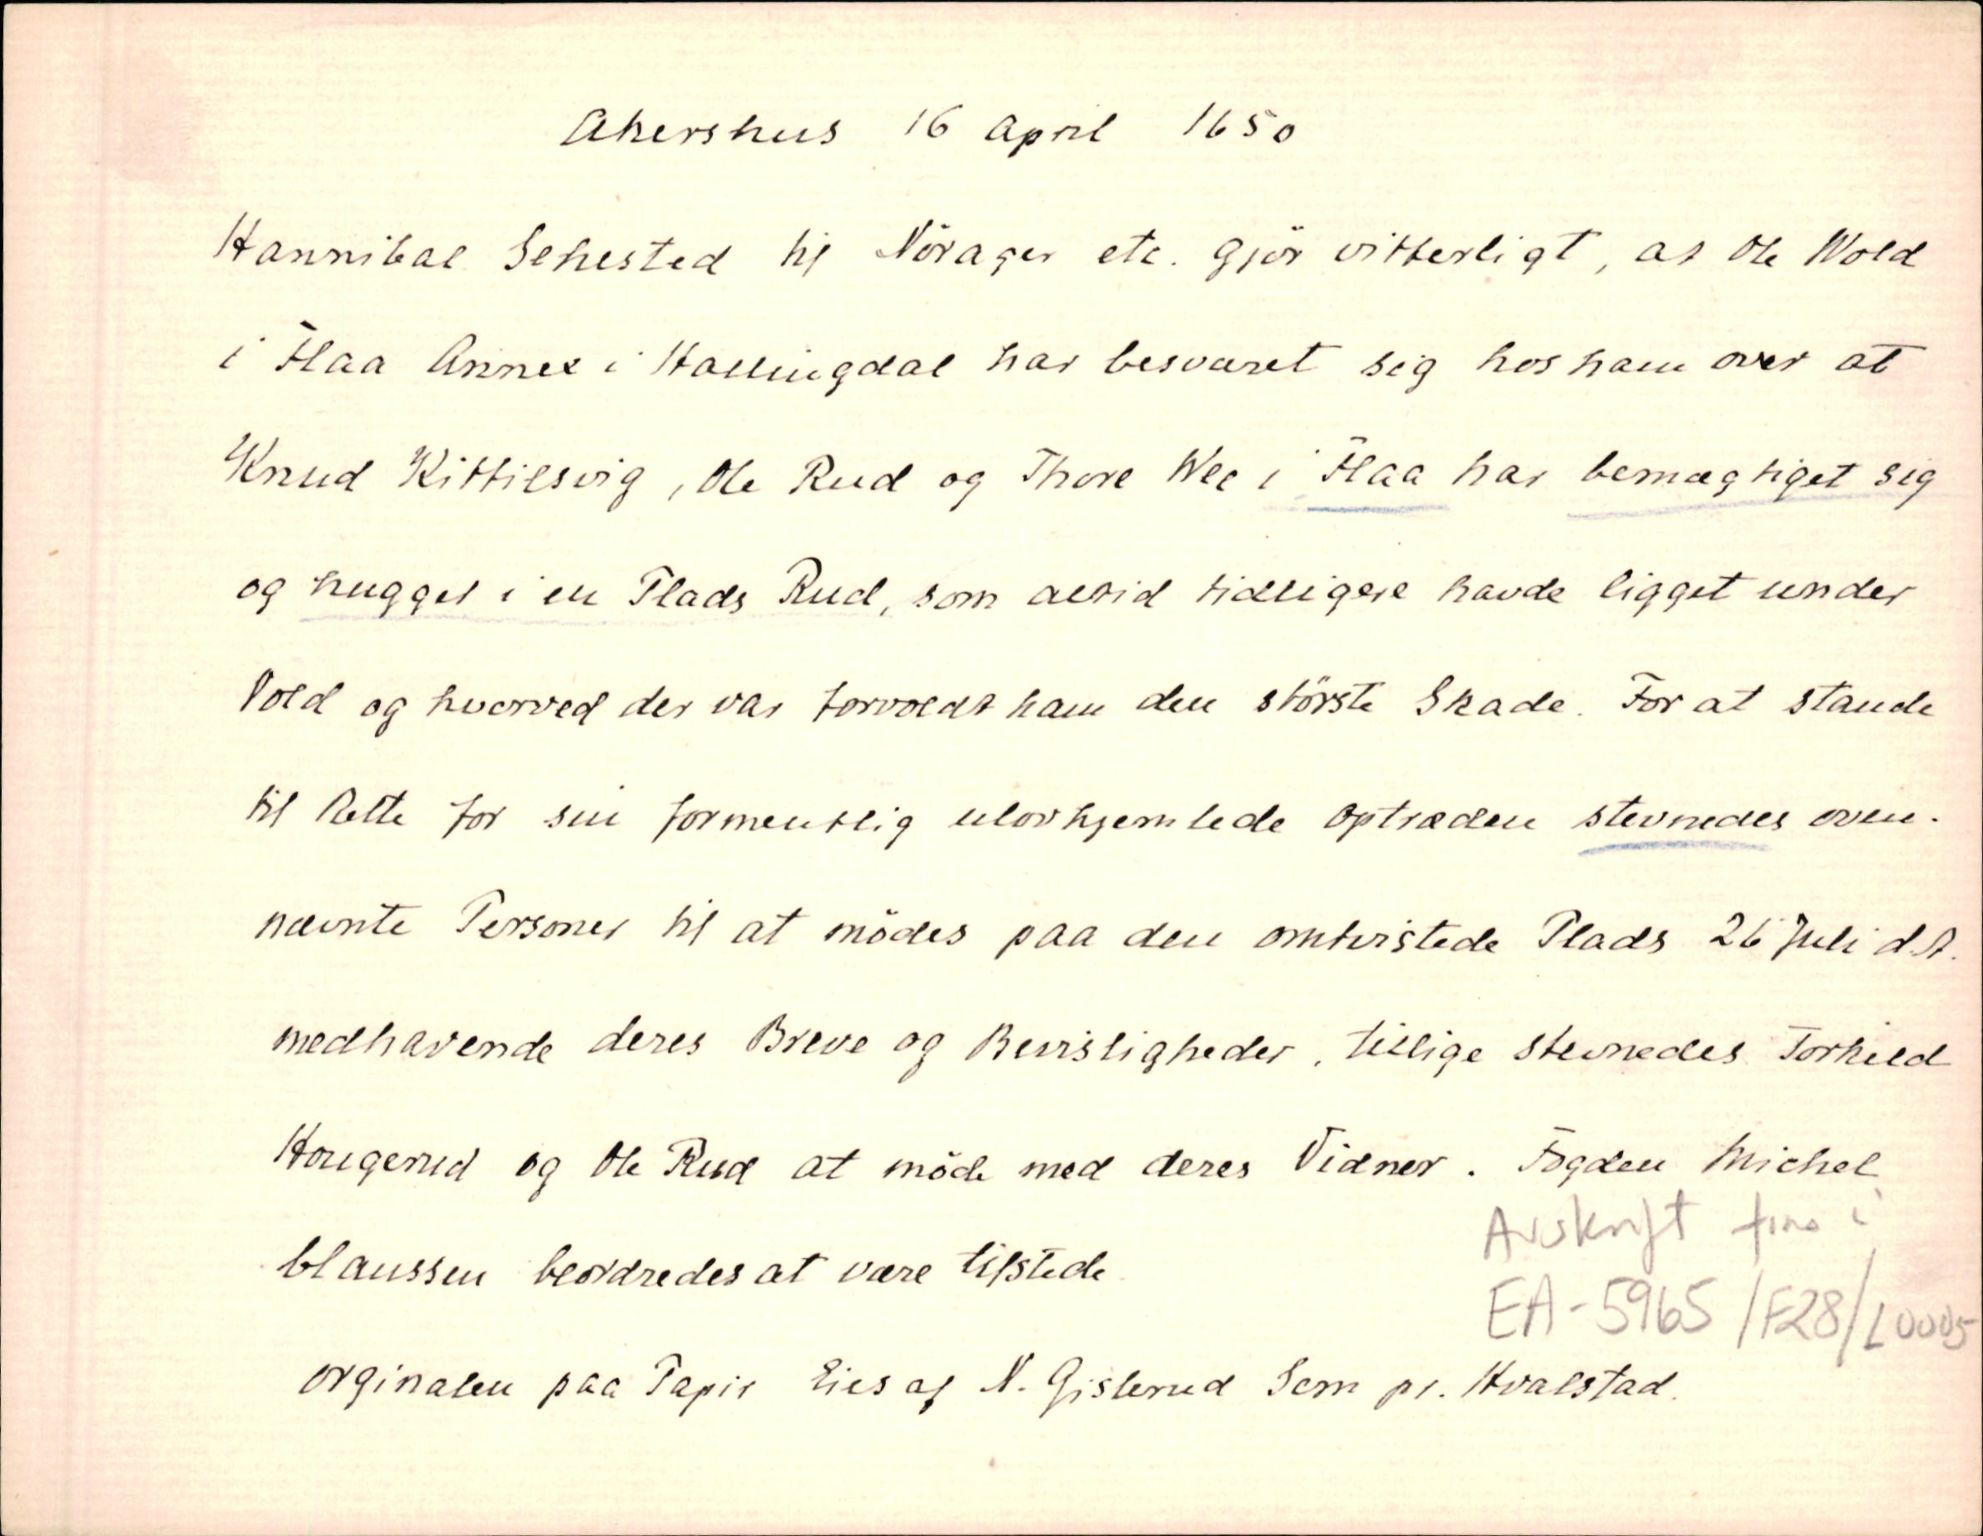 Akershus 16 April 1650
Hannibal Sehested til Nörager etc. Gjör vitterligt, at Ole Wold
i Flaa Annex i Hallingdal har besværet sig hos ham over at
Knud Kittilsvig, Ole Rud og Thore Wee i Flaa har bemægtiget sig
og hugget i en Plads Rud, som altid tidligere havde ligget under
Vold og hvorved der var forvoldt ham den störste Skade. For at stande
til Rette for sin formentlig ulovhjemlede Optræden stevnedes oven-
nævnte Personer til at mödes paa den omtvistede Plads 26 Juli d.A.
medhavende deres Breve og Bevisligheder, tillige stevnedes Torkild
Hougerud og Ole Rud at möde med deres Vidner. Fogden Michel
Claussen beordredes at være tilstede
Orginalen paa Papir Eies af N. Gislerud Sem pr. Hvalstad.
Avskrift fins i
EA-5965/F28/L0005